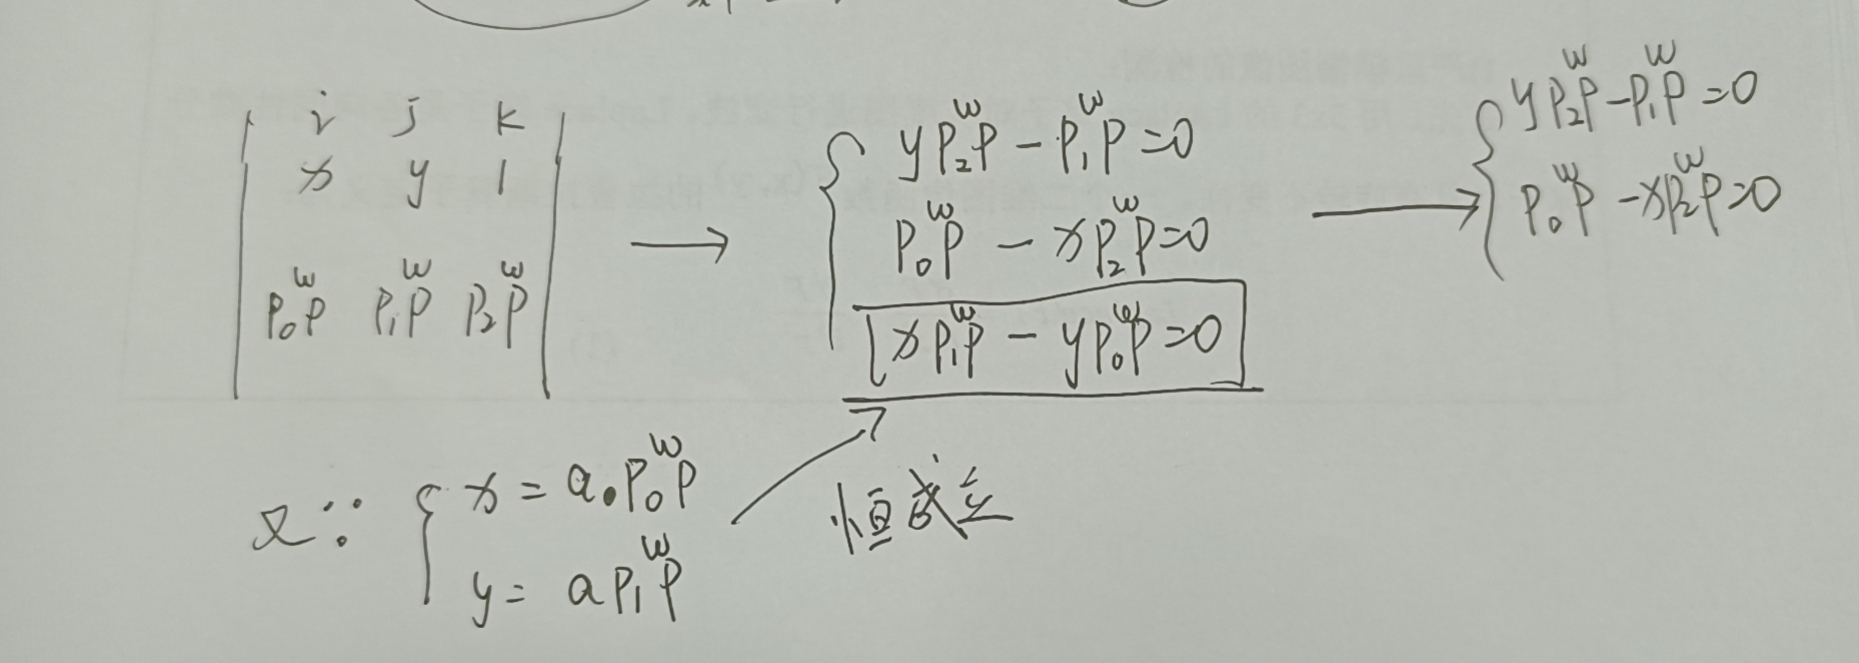 | i j k |
| x y 1 |
| P₀ʷP P₁ʷP P₂ʷP |
→
{ yP₂ʷP - P₁ʷP = 0
P₀ʷP - xP₂ʷP = 0
xP₁ʷP - yP₀ʷP = 0
→
{ yP₂ʷP - P₁ʷP = 0
P₀ʷP - xP₂ʷP = 0
又∵ { x = a·P₀ʷP
y = aP₁ʷP
恒成立